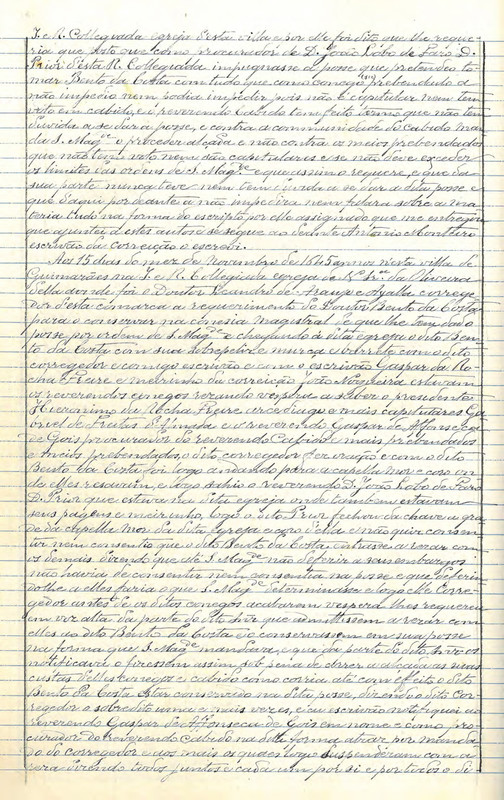 I. e R. Collegiada egreja desta villa e por elle foi dito que lhe reque-
ria que posto que como procurador de D. João Lobo de Faro D.
Prior desta R. Collegiada impugnasse a posse que pretendeu to-
mar Bento da Costa comtudo que como conego prebendado
não impedio nem podia impedir pois não é capitular nem tem
voto em cabido, e o reverendo Cabido tem feito termo que não tem
duvida a se dar a posse, e contra a communidade do Cabido man-
da S. Mag.de proceder alçada e não contra os meios prebendados
que não teem voto nem são capitulares e se não deve exceder
os limites das ordens de S. Mag.de e que assim o requere, e que da
sua parte nunca teve nem tem duvida a se dar a dita posse e
que daqui por deante a não impedira nem fallara sobre a ma-
teria tudo na forma do escripto por elle assignado que me entregou
que ajuntei a estes autos e se segue ao deante Antonio Monteiro
escrivão da correição o escrevi.
Aos 15 dias do mez de Novembro de 1645 annos nesta villa de
Guimarães na I. e R. Collegiada egreja de N. Snr.a da Oliveira
della aonde foi o Doutor Leandro de Araujo e Ayalla correge-
dor desta comarca a requerimento do Doutor Bento da Costa
para o conservar na conesia magistral de que lhe tem dado
posse por ordem de S. Mag.de e chegando á dita egreja o dito Ben-
to da Costa com sua sobrepeliz e murça e barrete como o dito
corregedor e comigo escrivão e com o escrivão Gaspar da Ro-
cha Freire e meirinho da correição João Nogueira estavam
os reverendos conegos rezando vespera a saber o presidente
Hieronimo da Rocha Freire arcediago e mais capitulares Ga-
briel de Freitas d'Almeida e o reverendo Gaspar de Affonseca
de Gois procurador do reverendo Cabido e mais prebendados
e meios prebendados, o dito corregedor fez oração e com o dito
Bento da Costa foi logo andando para a capella mor e coro on-
de elles resavam, e logo sahio o reverendo D. João Lobo de Faro
D. Prior que estava na dita egreja onde tambem estavam
seus pagens e meirinho, logo o dito Prior fechou da chave a gra-
de da capella mor da dita egreja e coro della e não quiz consen-
tir nem consentio que o dito Bento da Costa entrasse a rezar com
os demais dizendo que até S. Mag.de não deferir a seus embargos
não havia de consentir nem consentia na posse e que deferin-
do-lhe a elles faria o que S. Mag.de determinasse e logo elle Corre-
gedor antes de os ditos conegos acabarem vespera lhes requereu
em voz alta da parte do dito Snr. que admittissem a rezar com
elles ao dito Bento da Costa e o conservassem em sua posse
na forma que S. Mag.de mandava, e que da parte do dito Snr. os
notificava o fizessem assim sob pena de correr a alçada ás suas
custas delles conegos e cabido como corria até com effeito o dito
Bento da Costa estar conservado na dita posse, dizendo o dito Cor-
regedor o sobredito uma e mais vezes, e eu escrivão notifiquei ao
reverendo Gaspar de Affonseca de Gois em nome e como pro-
curador do reverendo Cabido na dita forma atraz por manda-
do do corregedor e aos mais os quaes logo suspenderam com a
reza dizendo todos juntos e cada um por si e por todos o di-